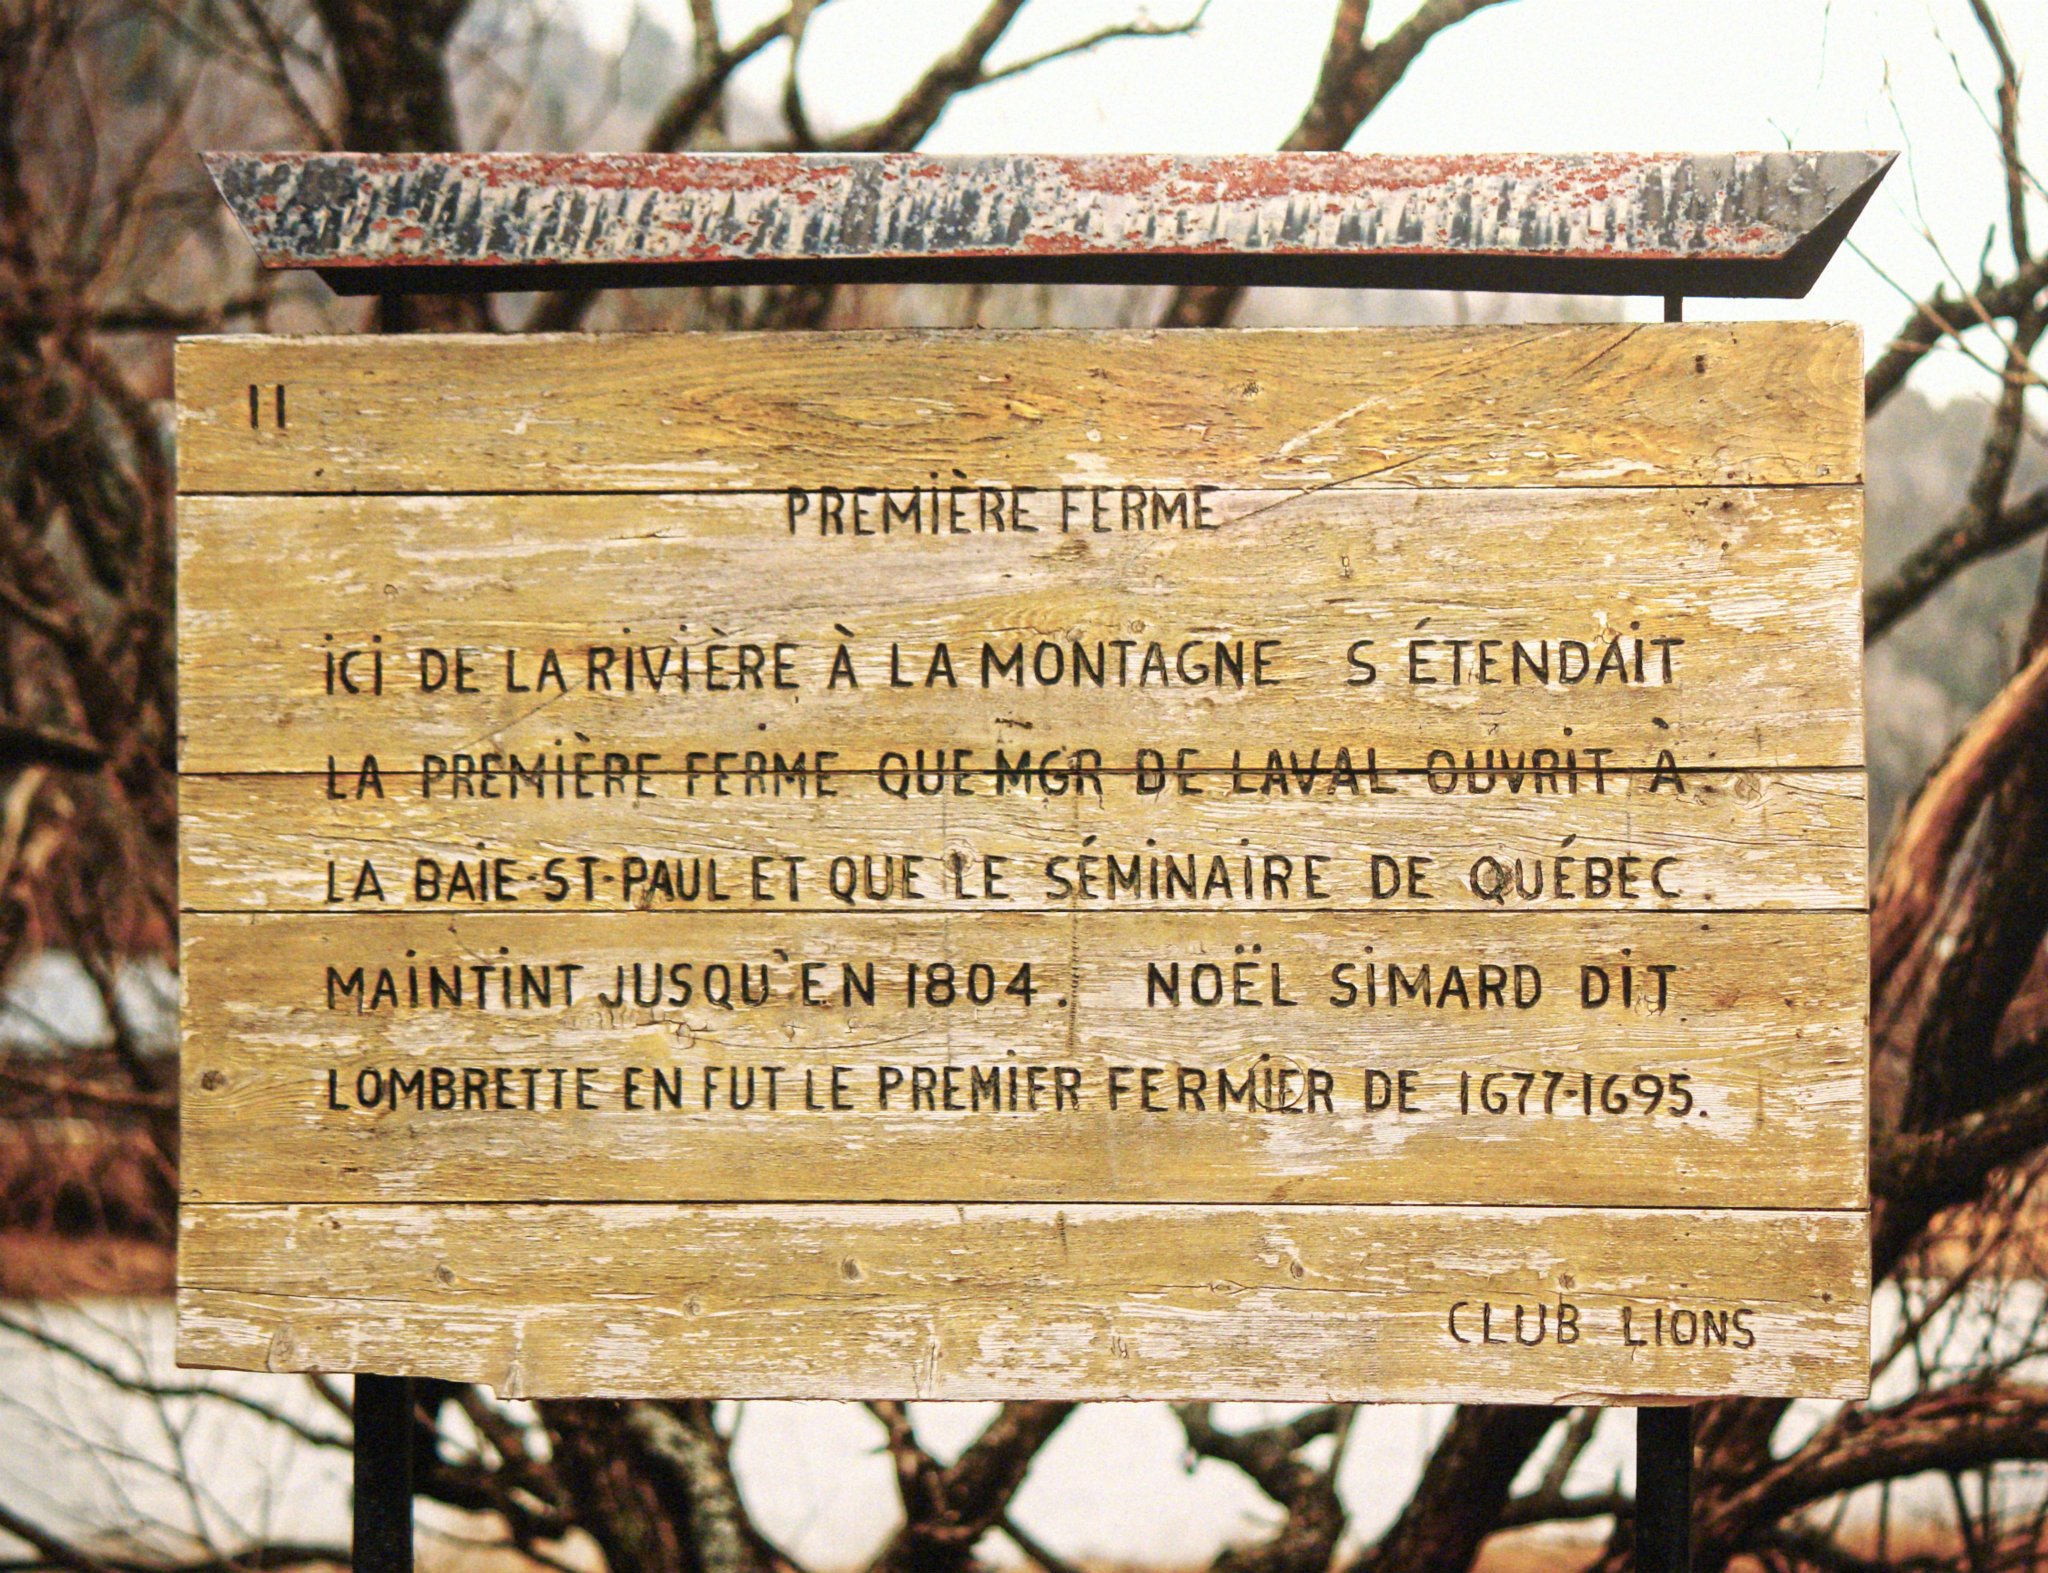 11
PREMIÈRE FERME
iCi DE LA RiViÈRE À LA MONTAGNE S ÉTENDAiT
LA PREMiÈRE FERME QUE MGR DE LAVAL OUVRiT À
LA BAiE-ST-PAUL ET QUE LE SÉMiNAiRE DE QUÉBEC
MAiNTiNT JUSQU'EN 1804. NOËL SiMARD DiT
LOMBRETTE EN FUT LE PREMiER FERMiER DE 1677-1695.
CLUB LIONS